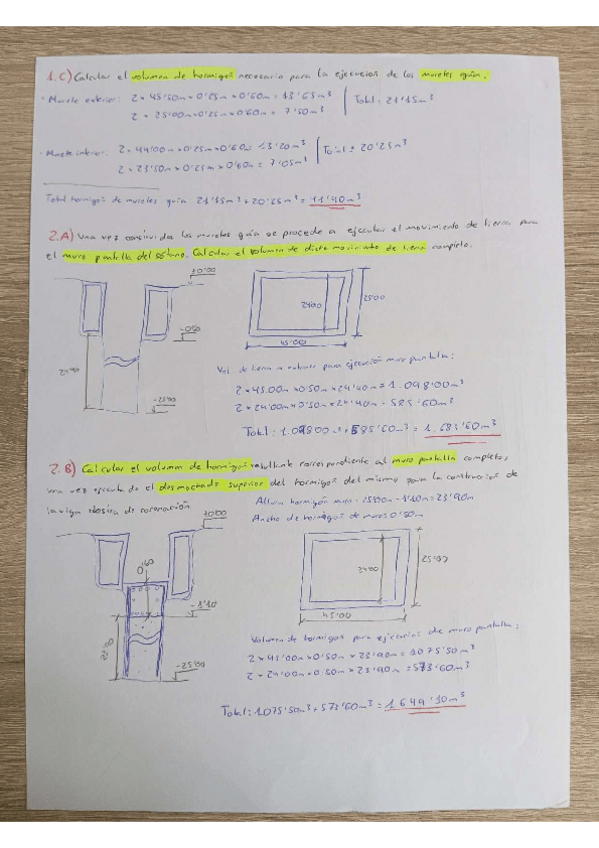 1.C) Calcular el volumen de hormigón necesario para la ejecución de los muretes guía.
· Murete exterior: 2 x 45'50m x 0'25m x 0'60m = 13'65m³
2 x 25'00m x 0'25m x 0'60m = 7'50m³
Total: 21'15m³
· Murete interior: 2 x 44'00m x 0'25m x 0'60m = 13'20m³
2 x 23'50m x 0'25m x 0'60m = 7'05m³
Total = 20'25m³
Total hormigón de muretes guía 21'15m³ + 20'25m³ = 41'40m³
2.A) Una vez concluidos los muretes guía se procede a ejecutar el movimiento de tierras para
el muro pantalla del sótano. Calcular el volumen de dicho movimiento de tierra completo.
±0'00
24'00
25'00
45'00
-25'00
Vol. de tierra a extraer para ejecución muro pantalla:
2 x 45.00m x 0.50m x 24'40m = 1.098'00m³
2 x 24'00m x 0'50m x 24'40m = 585'60m³
Total: 1.098'00m³ + 585'60m³ = 1.683'60m³
2.B) Calcular el volumen de hormigón resultante correspondiente al muro pantalla completo,
una vez ejecutado el desmochado superior del hormigón del mismo para la construcción de
la viga riostra de coronación
Altura hormigón muro = 25'00m - 1'10m = 23'90m
Ancho de hormigón de muros 0'50m
±0'00
0'60
-1'10
-25'00
24'00
25'00
45'00
Volumen de hormigón para ejecución de muro pantalla:
2 x 45'00m x 0'50m x 23'90m = 1075'50m³
2 x 24'00m x 0.50m x 23'90m = 573'60m³
Total: 1.075'50m³ + 573'60m³ = 1.649'10m³